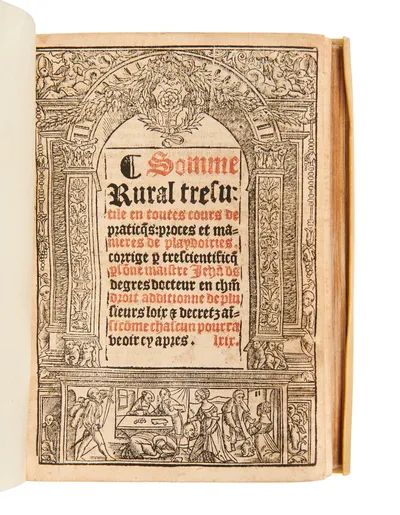 ⸿ Somme
Rural tresu-
tile en toutes cours de
practicq̃s: proces et ma-
nieres de playdoiries.
corrige ꝑ trescientificq̃
⁊ sõne maistre Jehã de
degres docteur en chm̃
droit additionne de plu
sieurs loix ⁊ decretz aĩ-
sicõme chascun pourra
veoir cy apres. lxix.